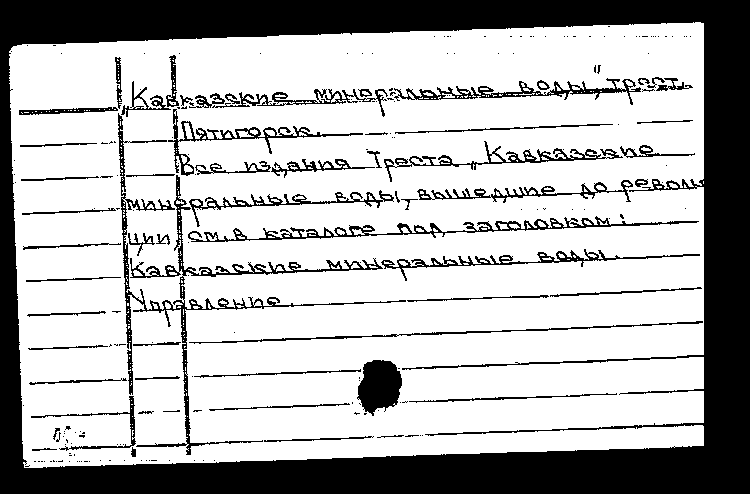 „Кавказские минеральные воды", трест.
Пятигорск.
Все издания Треста „Кавказские
минеральные воды, вышедшие до револю
ции, см. в каталоге под заголовком:
Кавказские минеральные воды.
Управление.